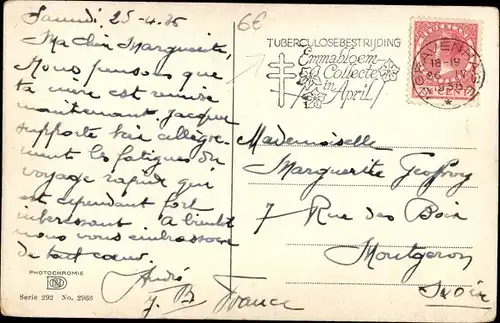 Samedi 25-4.36
6€
Ma chère Marguerite,
Nous pensons que
ta mère est remise
maintenant. Jacques
supporte très allègre-
ment les fatigues du
voyage rapide qui
est cependant fort
intéressant A bientôt
nous vous embrassons
de tout coeur.
André
TUBERCULOSEBESTRIJDING
Emmabloem
Collecte
in April
'S GRAVENHAGE
18-19
26 IV
1936
Mademoiselle
Marguerite Geoffroy
7 Rue des Bois
Montgeron
France
PHOTOCHROMIE
Serie 292 No. 2966